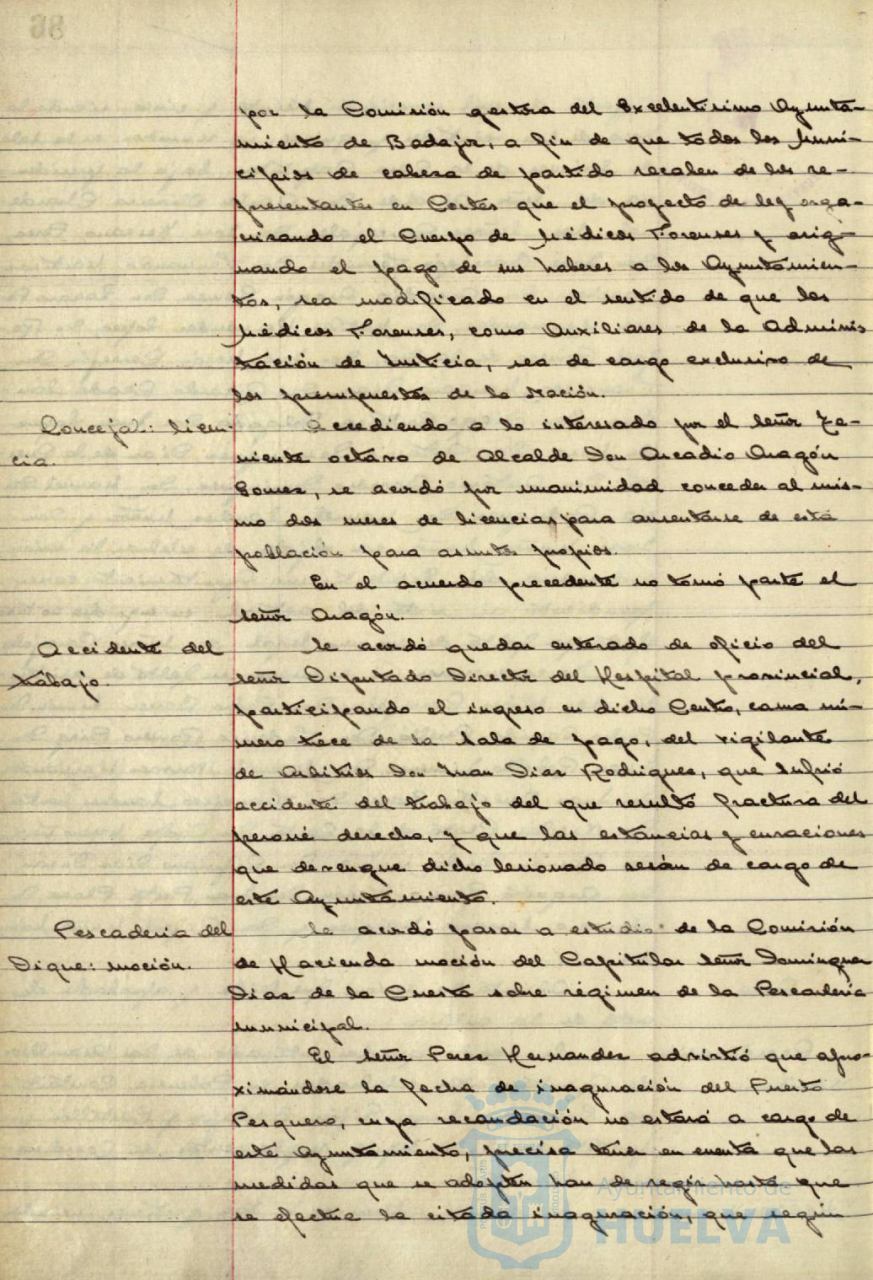 por la Comisión gestora del Excelentísimo Ayunta-
miento de Badajoz, a fin de que todos los Muni-
cipios de cabeza de partido recaben de los re-
presentantes en Cortes que el proyecto de ley orga-
nizando el Cuerpo de Médicos Forenses y asig-
nando el pago de sus haberes a los Ayuntamien-
tos, sea modificado en el sentido de que los
Médicos Forenses, como Auxiliares de la Adminis
tración de Justicia, sea de cargo exclusivo de
los presupuestos de la Nación.
Concejal: licen-
cia.
Accediendo a lo interesado por el señor Te-
niente octavo de Alcalde Don Arcadio Aragón
Gomez, se acordó por unanimidad conceder al mis-
mo dos meses de licencias para ausentarse de esta
población para asuntos propios.
En el acuerdo precedente no tomó parte el
señor Aragón.
Accidente del
trabajo.
Se acordó quedar enterado de oficio del
señor Diputado Director del Hospital provincial,
participando el ingreso en dicho Centro, cama nú-
mero trece de la Sala de pago, del vigilante
de Arbitrios Don Juan Diaz Rodriguez, que sufrió
accidente del trabajo del que resultó fractura del
peroné derecho, y que las estancias y curaciones
que devengue dicho lesionado serán de cargo de
este Ayuntamiento.
Pescaderia del
Dique: moción.
Se acordó pasar a estudio de la Comisión
de Hacienda moción del Capitular señor Dominguez
Diaz de la Cuesta sobre régimen de la Pescadería
municipal.
El señor Perez Hernandez advirtió que apro-
ximándose la fecha de inaguración del Puerto
Pesquero, cuya recaudación no estará a cargo de
este Ayuntamiento, precisa tener en cuenta que las
medidas que se adopten han de regir hasta que
se efectue la citada inaguración, que según
Ayuntamiento de
HUELVA